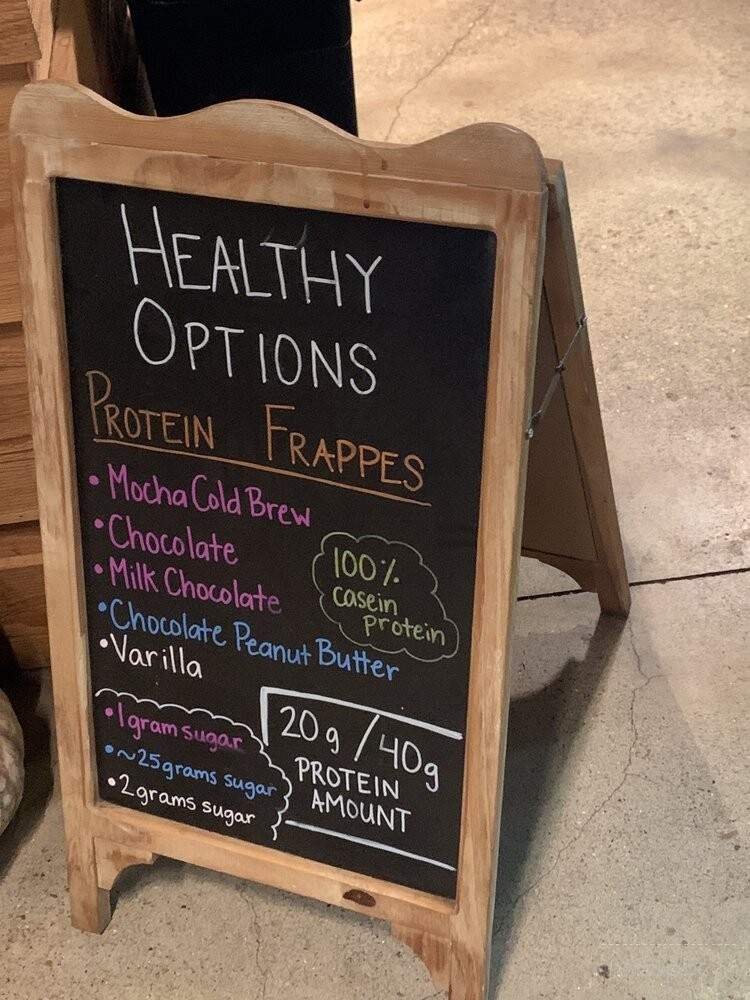 HEALTHY
OPTIONS
PROTEIN FRAPPES
• Mocha Cold Brew
• Chocolate
• Milk Chocolate
• Chocolate Peanut Butter
• Varilla
100%
casein
protein
• 1 gram sugar
• ~25 grams sugar
• 2 grams sugar
20g / 40g
PROTEIN
AMOUNT